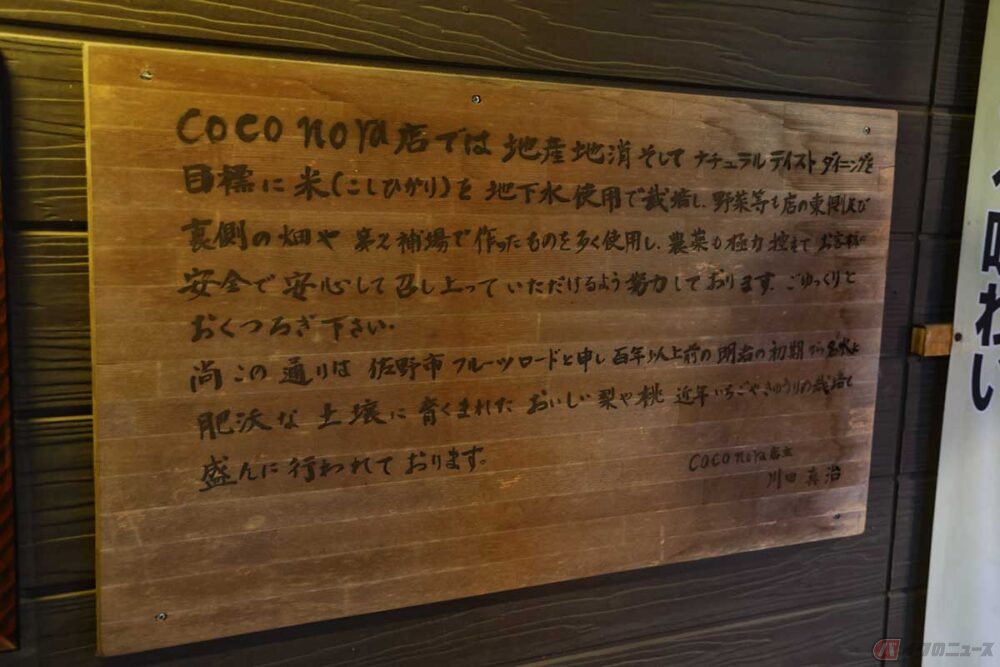 coco nora店では 地産地消 そして ナチュラルテイスト ダイニングを
目標に 米(こしひかり)を 地下水使用で栽培し、野菜等も店の東側及び
裏側の畑や 第2補場で作ったものを多く使用し、農薬も極力控えて お客様に
安全で 安心して 召し上って いただけるよう 努力しております。ごゆっくりと
おくつろぎ下さい。
尚 この 通りは 佐野市 フルーツロードと申し 百年以上前の 明治の初期から 名水と
肥沃な 土壌に 育くまれた おいしい 梨や桃 近年いちごやきゅうりの栽培も
盛んに行われております。
coco nora店主
川田 真治
味わい
のニュース